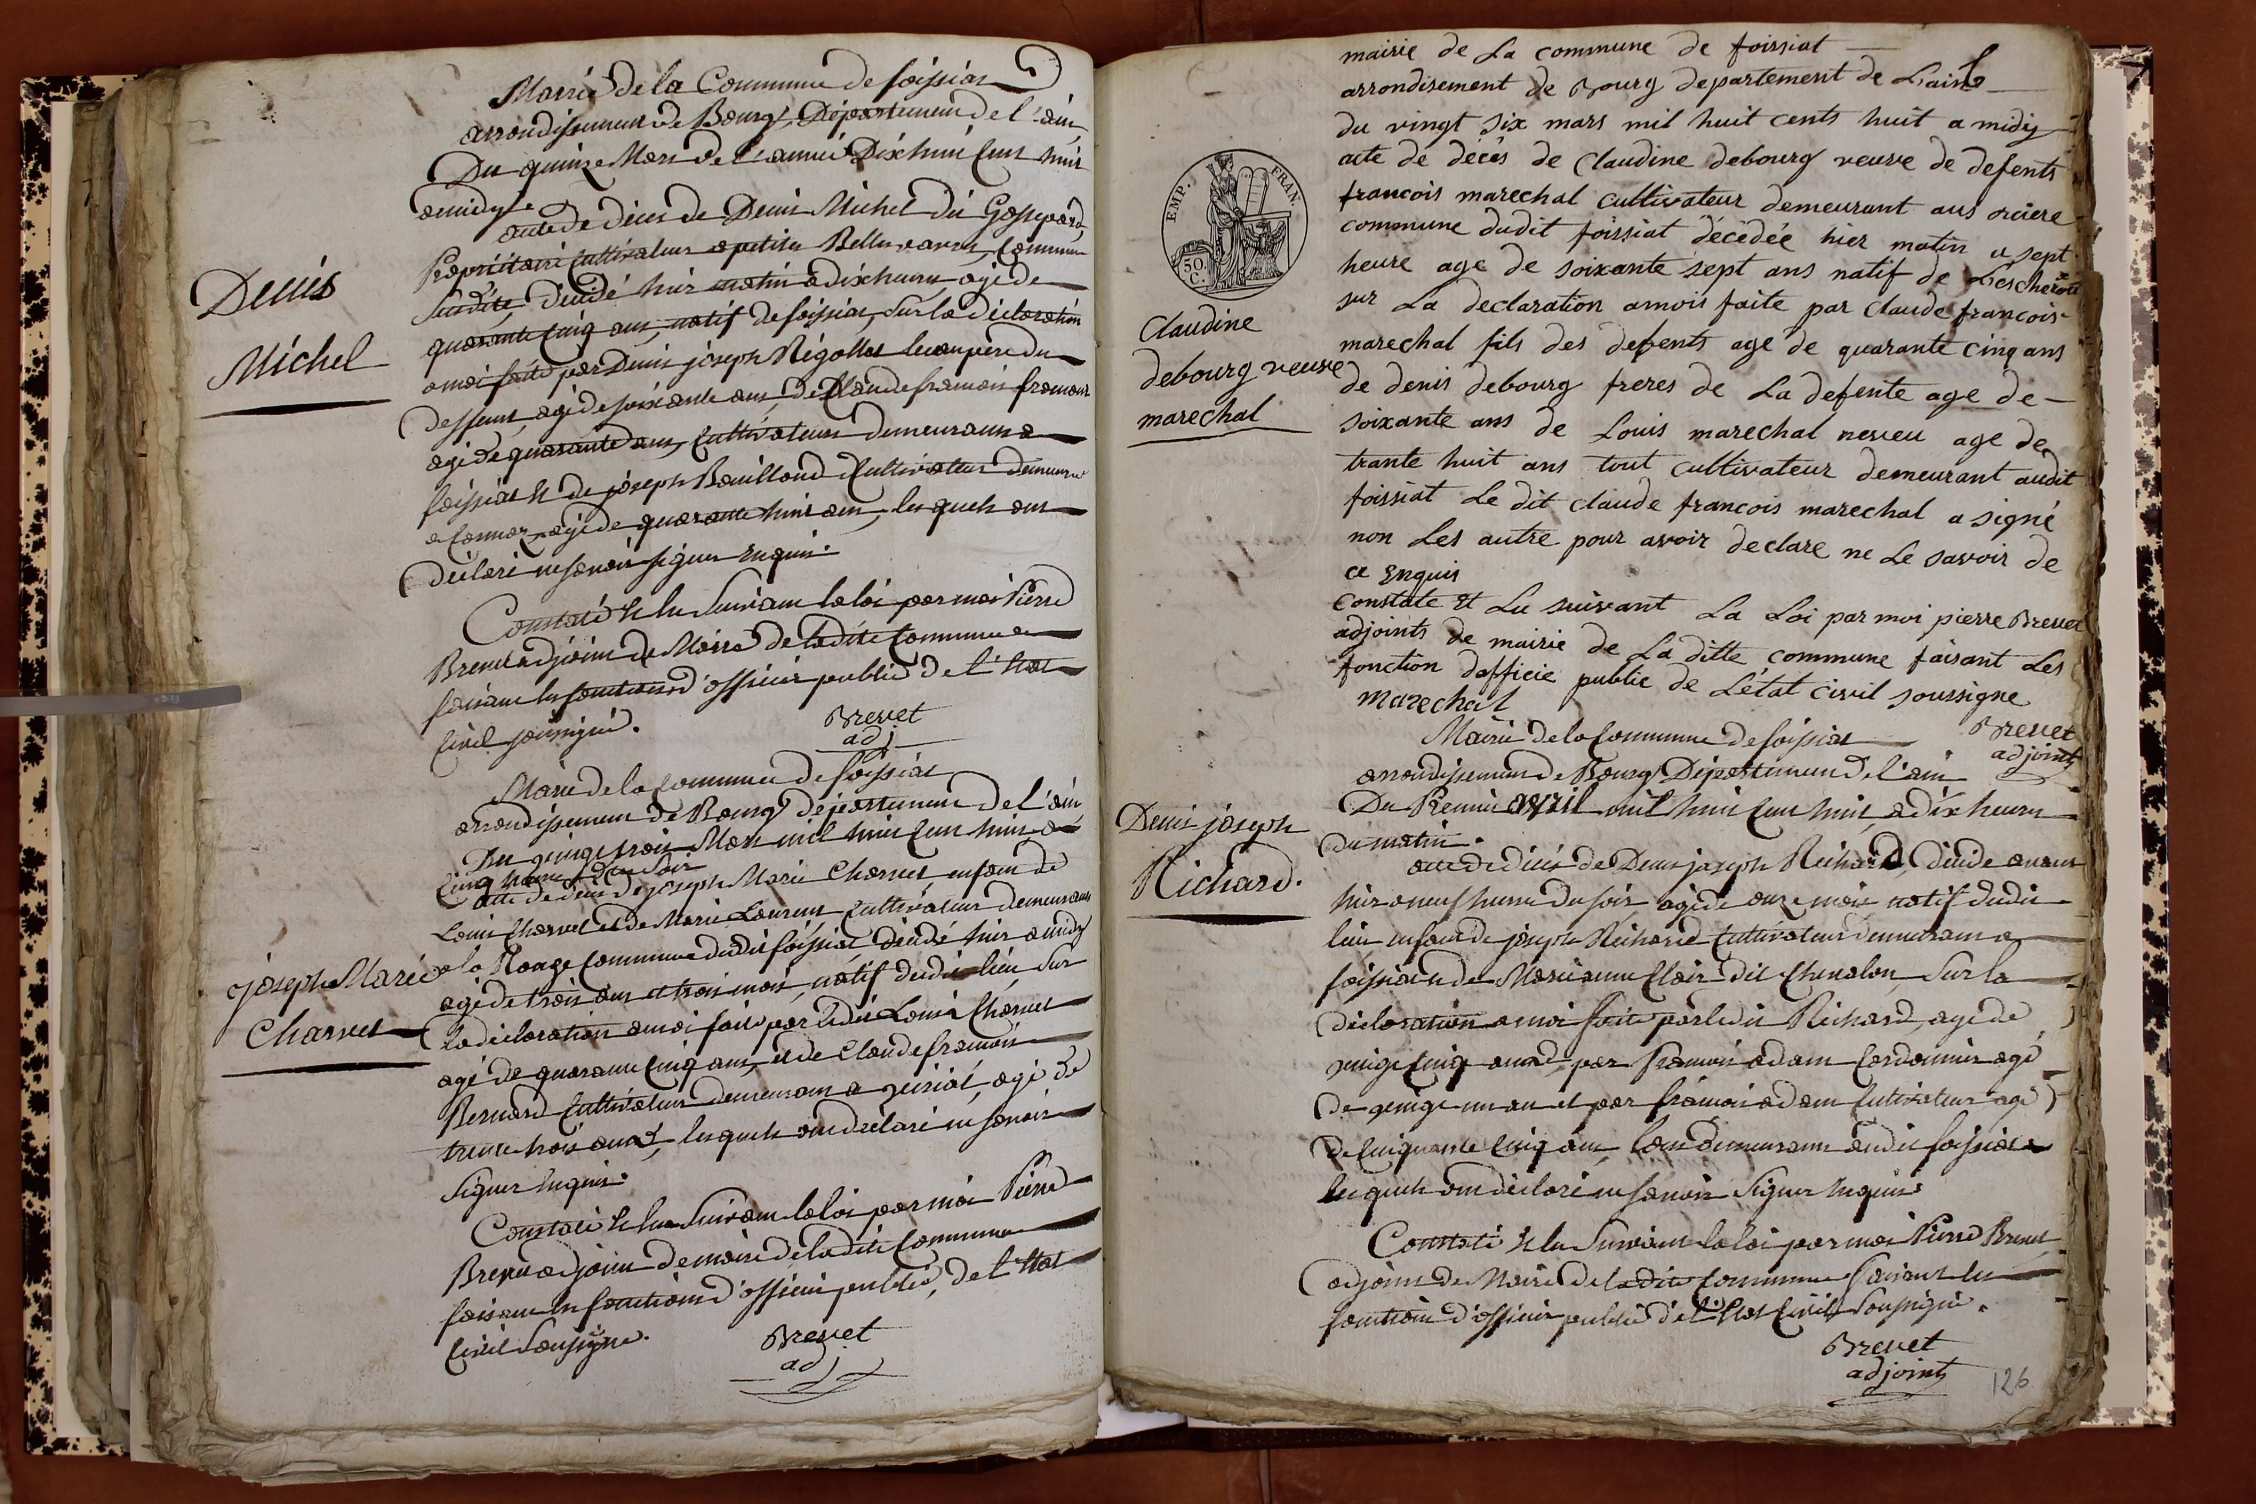 Mairie de la Commune de foissiat
arrondissement de Bourg, Département de l'ain,
Du quinze Mars de l'année Dixhuit Cent huit
amidy
acte de déces de Denis Michel dit Gaspard,
Propriétaire Cultivateur a petite Bellevavre, Commune
Susdite, décédé hier matin a dix heures, agé de
quarante Cinq ans, natif de foissiat, Sur la déclaration
a moi faite par Denis joseph Rigollet beaupere du
deffunt, agé de soixante ans, de Claude francois
agé de quarante ans, Cultivateurs demeurants a
foissiat Et de joseph Bouilloud Cultivateur demeurant
a Cormoz agé de quarante huit ans, les quels ont
déclaré ne savoir signer Enquis.
Constaté Et lu Suivant la loi par moi Pierre
Brevet adjoint de Maire de la dite Commune
faisant les fonctions d'officier public de l'Etat
Civil soussigné.
Brevet
adj
Denis
Michel
Mairie de la Commune de foissiat
arrondissement de Bourg département de l'ain
Du vingt trois Mars mil huit Cent huit a
Cinq heures du Soir
acte de déces de joseph Marie Charvet enfant de
Louis Charvet et de Marie Laurent Cultivateur demeurant
a la Commune dudit foissiat, décédé hier a midy
agé de trois ans et trois mois, natif dudit lieu, Sur
la déclaration a moi faite par ledit Louis Charvet
agé de quarante Cinq ans, et de Claude francois
Bernard Cultivateur demeurant a agé de
trente trois ans, lesquels ont déclaré ne savoir
Signer Enquis.
Constaté Et lu Suivant la loi par moi Pierre
Brevet adjoint de maire de la dite Commune
faisant les fonctions d'officier public, de l'Etat
Civil Soussigné.
Brevet
adj
joseph Marie
Charvet
mairie de La commune de foissiat
arrondisement de Bourg departement de Lain
du vingt six mars mil huit cents huit a midy
acte de décès de Claudine debourg veuve de defents
francois marechal cultivateur demeurant aus
commune dudit foissiat décédée hier matin a sept
heure age de soixante sept ans natif de Lescheroux
sur La declaration amois faite par claude francois
marechal fils des defents age de quarante cinq ans
de denis debourg freres de La defente age de
soixante ans de Louis marechal neveu age de
trante huit ans tout cultivateur demeurant audit
foissiat Le dit claude francois marechal a signé
non Les autre pour avoir declare ne Le savoir de
ce Enquis
Constate Et Lu suivant La Loi par moi pierre Brevet
adjoints de mairie de La ditte commune faisant Les
fonction dofficie public de Létat civil soussigne
marechal
Brevet
adjoint
EMP. FRAN.
50.
C.
Claudine
debourg veuve
marechal
Mairie de la Commune de foissiat
arrondissement de Bourg Département de l'ain
Du Premier avril mil huit Cent huit, a dix heures
du matin.
acte de déces de Denis joseph Richard, décédé avant
hier a neuf heures du soir agé de onze mois natif dudit
lieu enfant de joseph Richard Cultivateur demeurant a
foissiat et de Marianne Clair dit Chevalon, Sur la
déclaration a moi faite par ledit Richard, agé de
vingt Cinq ans, par francois adam Cordonnier agé
de vingt un an et par francois adam Cultivateur agé
de Cinquante Cinq ans, tous demeurant audit foissiat
les quels ont déclaré ne savoir Signer Enquis.
Constaté Et lu Suivant la loi par moi Pierre Brevet
adjoint de Maire de la dite Commune faisant les
fonctions d'officier public de l'Etat Civil Soussigné.
Brevet
adjoint
Denis joseph
Richard.
126